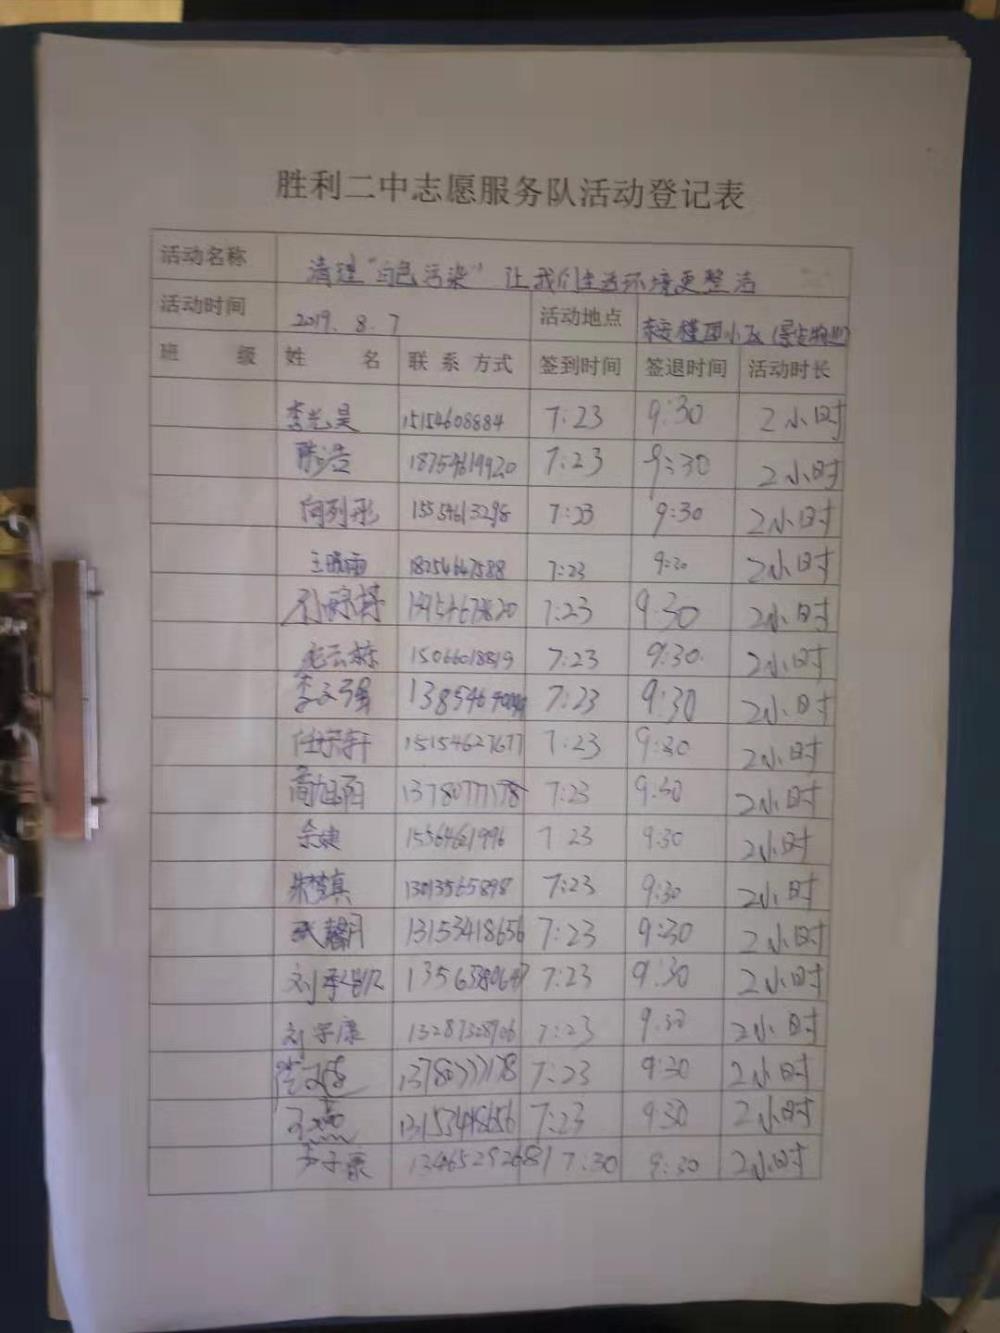 胜利二中志愿服务队活动登记表
活动名称 清理“白色污染” 让我们生活环境更整洁
活动时间 2019.8.7 活动地点 小区
班 级 姓 名 联系方式 签到时间 签退时间 活动时长
李光昊 15154608884 7:23 9:30 2小时
陈浩 18754619920 7:23 9:30 2小时
15554613298 7:23 9:30 2小时
王晓雨 18254647588 7:23 9:30 2小时
7:23 9:30 2小时
15066018819 7:23 9:30. 2小时
李文强 7:23 9:30 2小时
任宗轩 15154627677 7:23 9:30 2小时
13780777178 7:23 9:30 2小时
余婕 7 23 9:30 2小时
朱梦真 13013565898 7:23 9:30 2小时
13153418656 7:23 9:30 2小时
刘 7:23 9:30 2小时
刘宇康 13287328706 7:23 9:30 2小时
13780777178 7:23 9:30 2小时
13153418656 7:23 9:30 2小时
李子康 13465292681 7:30 9:30 2小时